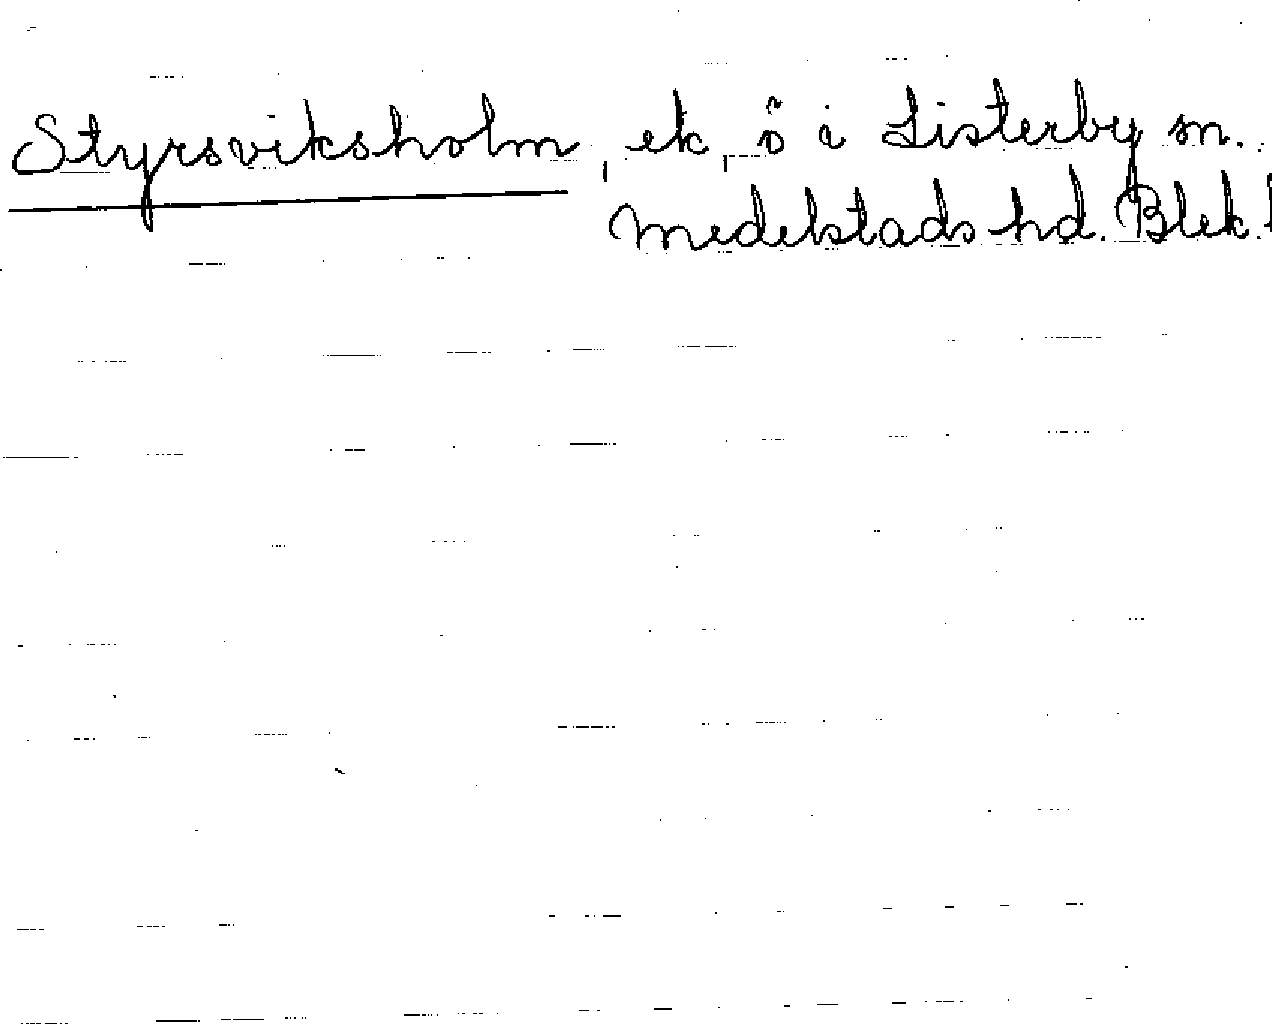 Styrsviksholm, ek, ö i Listerby sn.
Medelstads hd. Blek.